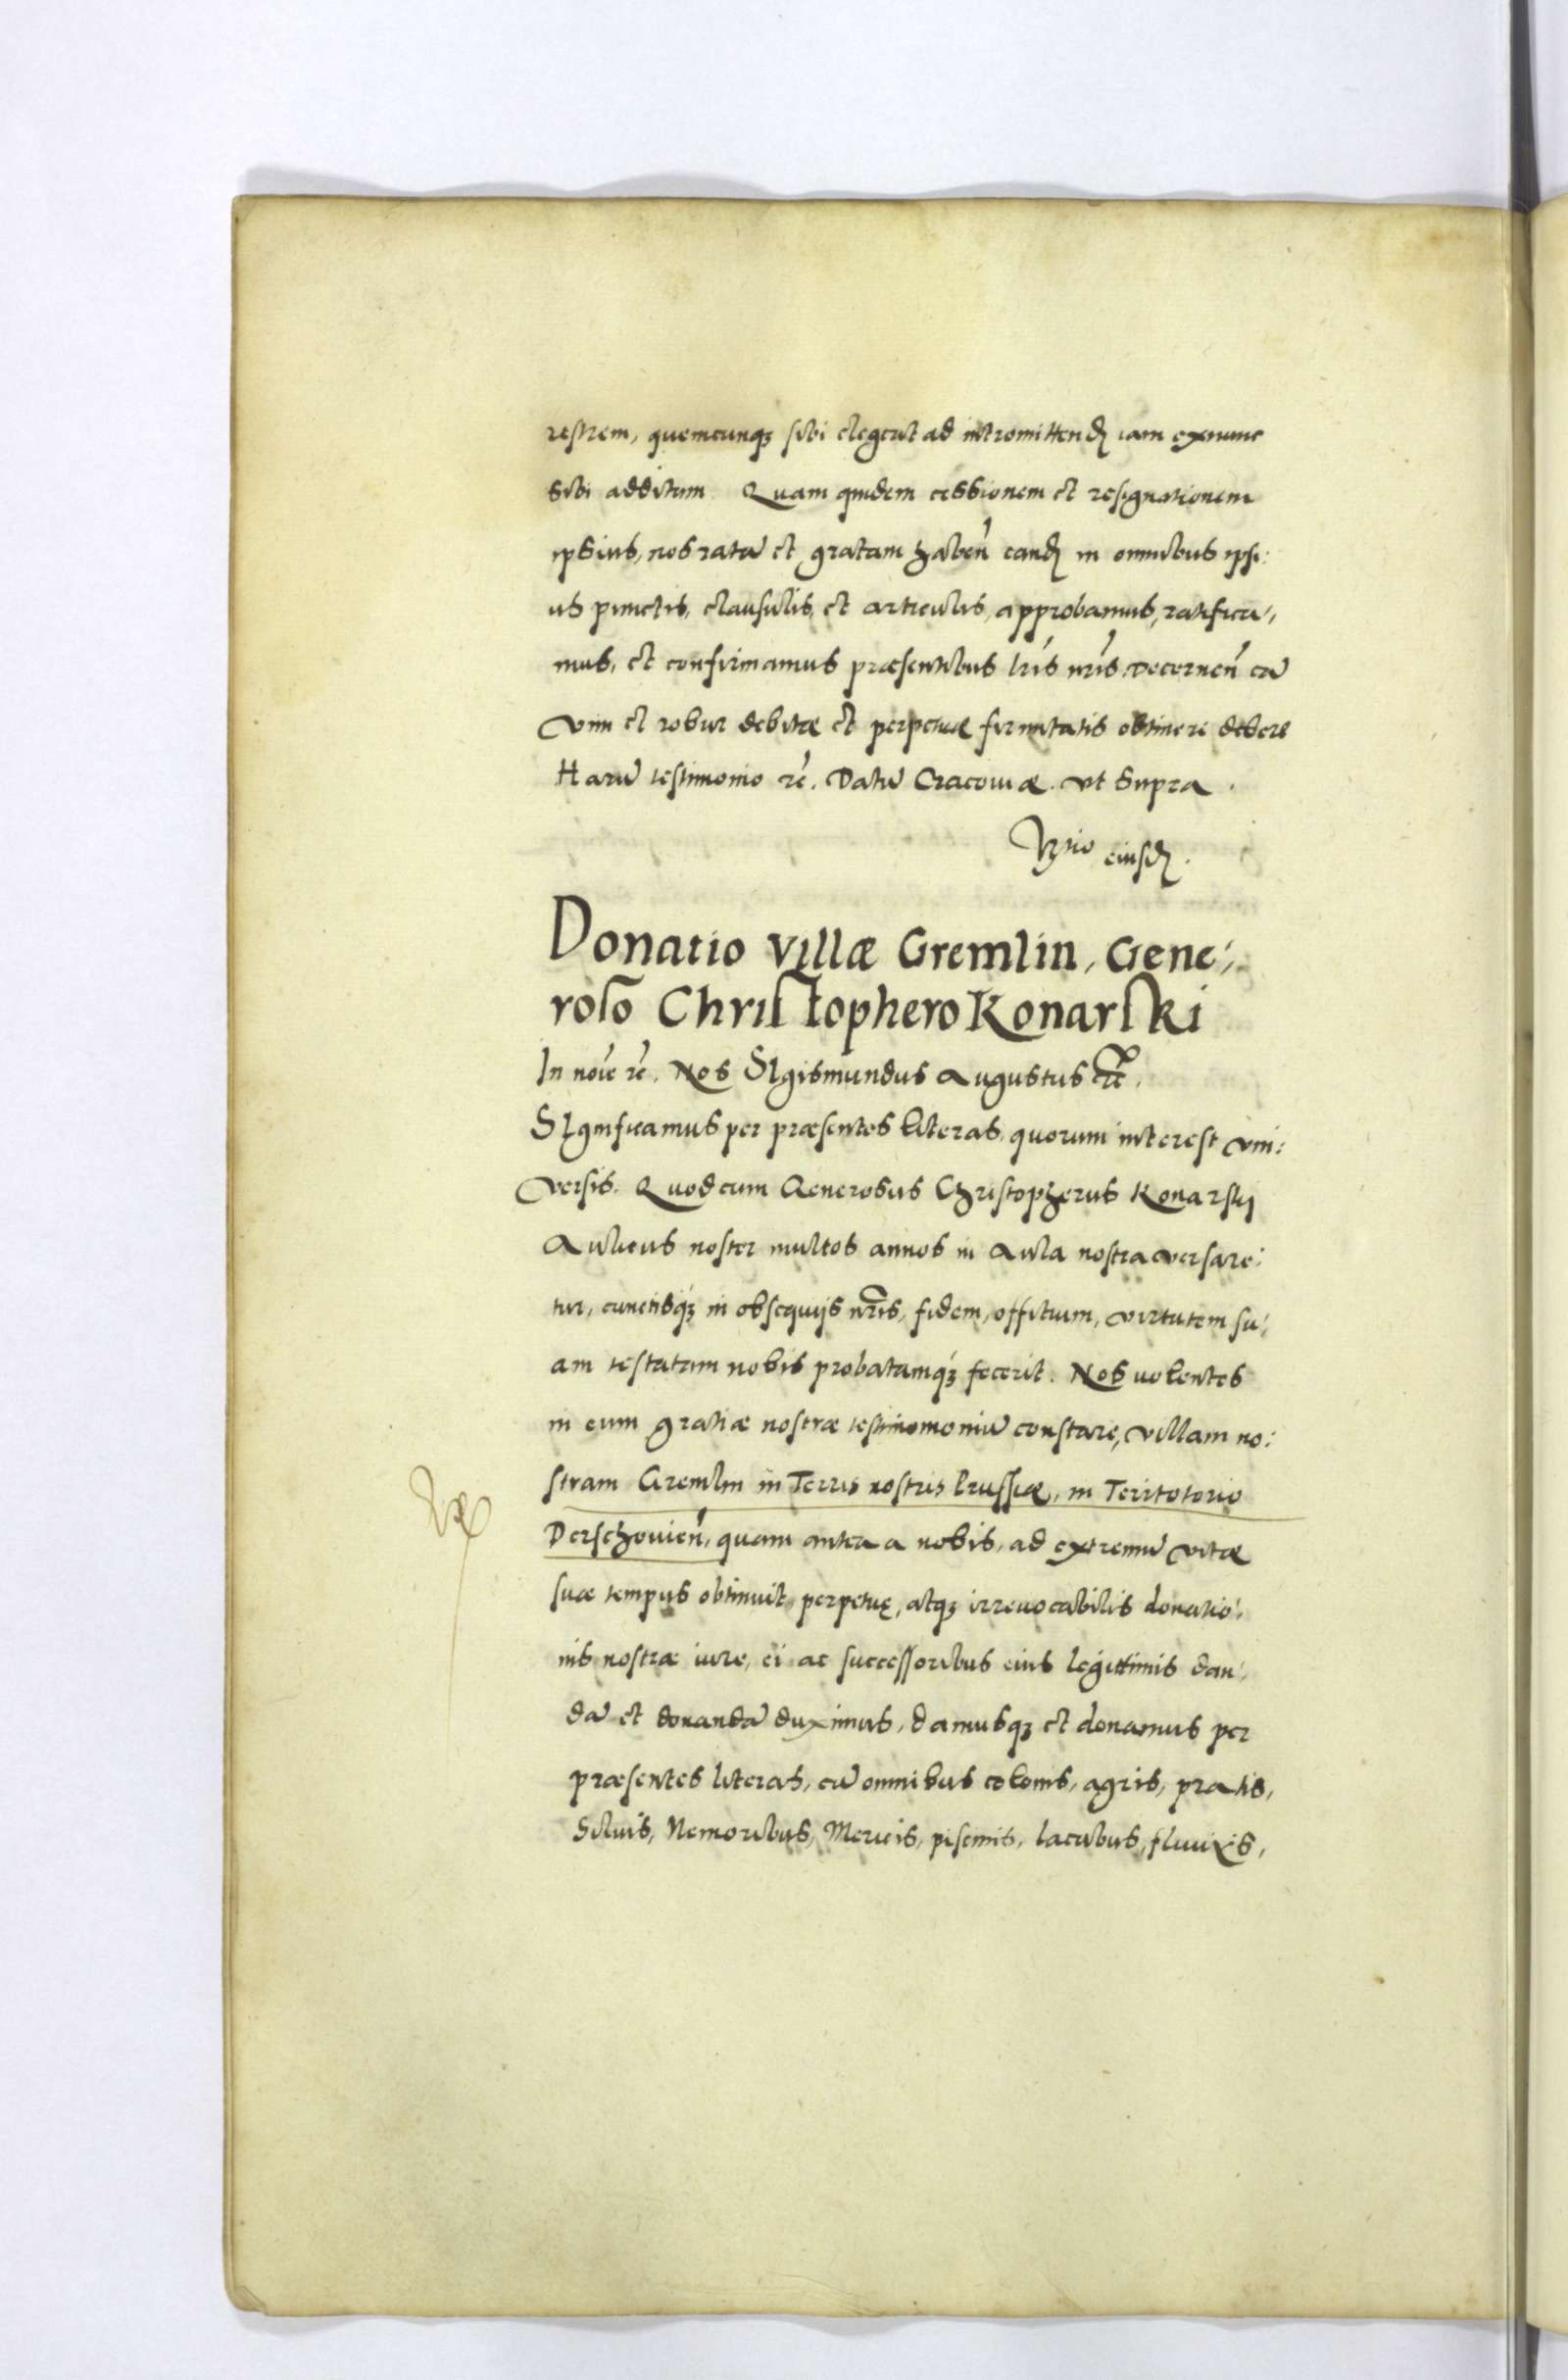 restrem, quemcunqз sibi elegerit ad intromittend iam exnunc
sibi additum. Quam quidem cessionem et resignationem
ipsius, nos ratā et gratam haben̄ eand in omnibus ipsi:
us punctis, clausulis, et articulis, approbamus, ratifica,
mus, et confirmamus præsentibus lr̄is nr̄is. Decernen̄ eā
vim et robur debitæ et perpetuæ firmitatis obtinere debere
Harū testimonio rē. Datū Cracouiæ. ut supra.
eiusd.
Donatio villæ Gremlin, Gene,
roso Christophero Konarski
In noīe rē. Nos Sigismundus Augustus rē.
Significamus per præsentes literas, quorum interest vni:
versis. Quod cum Generosus Christopherus Konarskij
Aulicus noster multos annos in Aula nostra versare:
tur, cunctisqз in obsequijs nr̄is, fidem, offitium, virtutem su,
am testatam nobis probatamqз fecerit. Nos uolentes
in eum gratiæ nostræ testimomoniū constare, villam no:
stram Gremlin in Terris nostris Prussiæ, in Territotorio
Derschouien̄, quam antea a nobis, ad extremū vitæ
suæ tempus obtinuit, perpetuę, atqз irreuocabilis donatio,
nis nostræ iure, ei ac successoribus eius legittimis dan,
dā et donandā duximus, damusqз et donamus per
præsentes literas, cū omnibus colonis, agris, pratis,
Siluis, Nemoribus, Mericis, piscinis, lacubus, fluuijs,